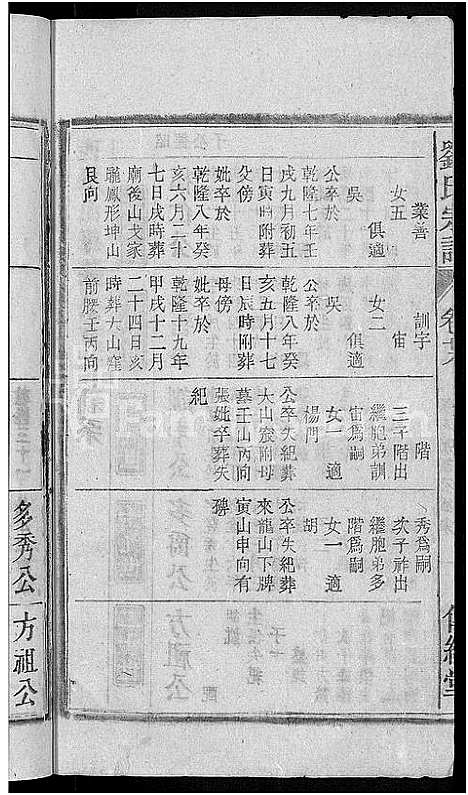 劉氏宗譜
業善
女五
俱適
吳
公卒於
乾隆七年壬
戌九月初五
日寅時附葬
父傍
妣卒於
乾隆八年癸
亥六月二十
七日戌時葬
廟後山戈家
隴鳳形坤山
艮向
訓字
宙
女二
俱適
吳
公卒於
乾隆八年癸
亥五月十七
日辰時附葬
母傍
妣卒於
乾隆十九年
甲戌十二月
二十四日亥
時葬大山窪
前腰壬丙向
階
三子階出
繼胞弟訓
宙爲嗣
女一適
楊門
公卒失紀葬
大山塝附母
墓壬山丙向
張妣卒葬失
紀
秀爲嗣
次子祚出
繼胞弟多
階爲嗣
女一適
胡
公卒失紀葬
來龍山下牌
寅山申向有
碑
多秀公
方祖公